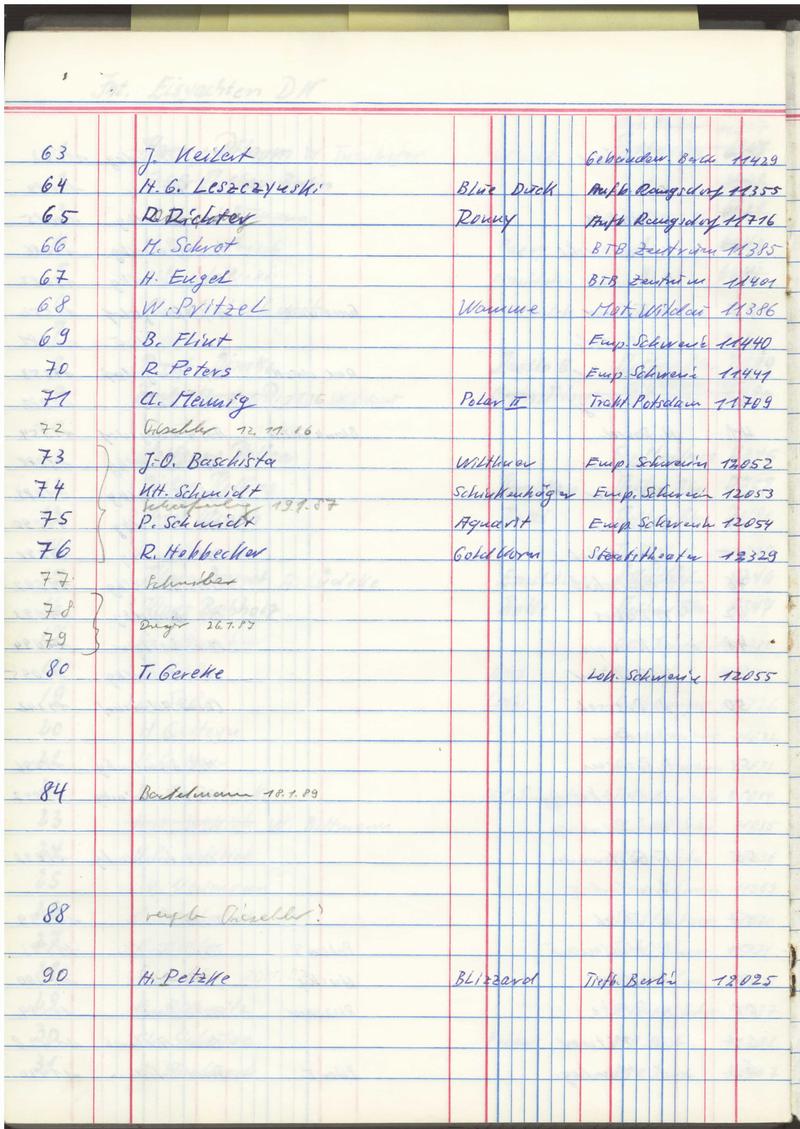 Int. Eisyachten DN
63 J. Keilert 11429
64 H. G. Leszczynski Blue Duck Aufb Rangsdorf 11355
65 R. Richter Ronny Aufb Rangsdorf 11716
66 M. Schrot BTB Zentrum 11385
67 H. Engel BTB Zentrum 11401
68 W. Pritzel Wamme Mot. Wildau 11386
69 B. Flint Emp. Schwerin 11440
70 R. Peters Emp Schwerin 11441
71 A. Mennig Polar II Trakt Potsdam 11709
72 12.11.86
73 J.-O. Baschista Wilthner Emp. Schwerin 12052
74 KH. Schmidt Schinkenhäger Emp. Schwerin 12053
19.1.87
75 P. Schmidt Aquavit Emp Schwerin 12054
76 R. Hebbecker Goldkorn Staatstheater 12329
77 Schreiber
78
26.1.87
79
80 T. Gereke Lok. Schwerin 12055
84 18.1.89
88
90 H. Petzke Blizzard Tiefb. Berlin 12025